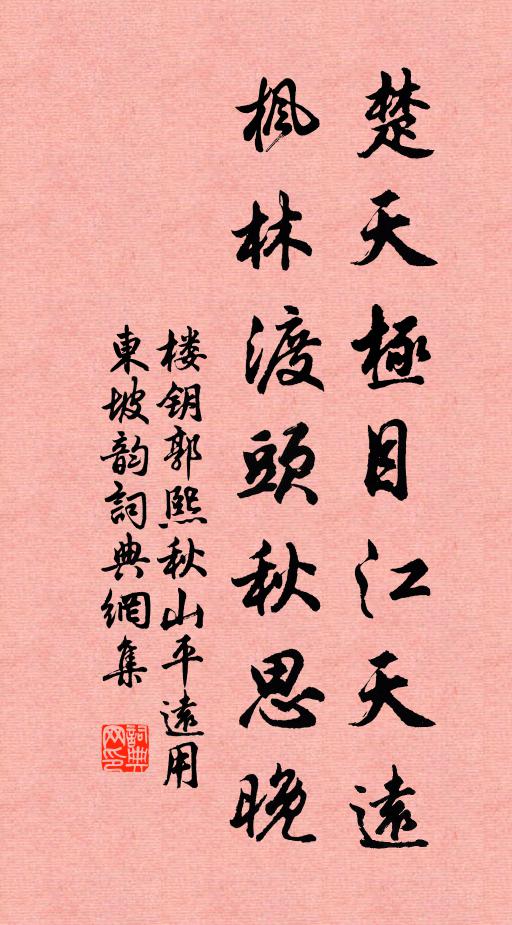 楚天極目江天遠
楓林渡頭秋思晚
楼钥郭熙秋山平遠用
東坡韵詞典網集
詞典
网印